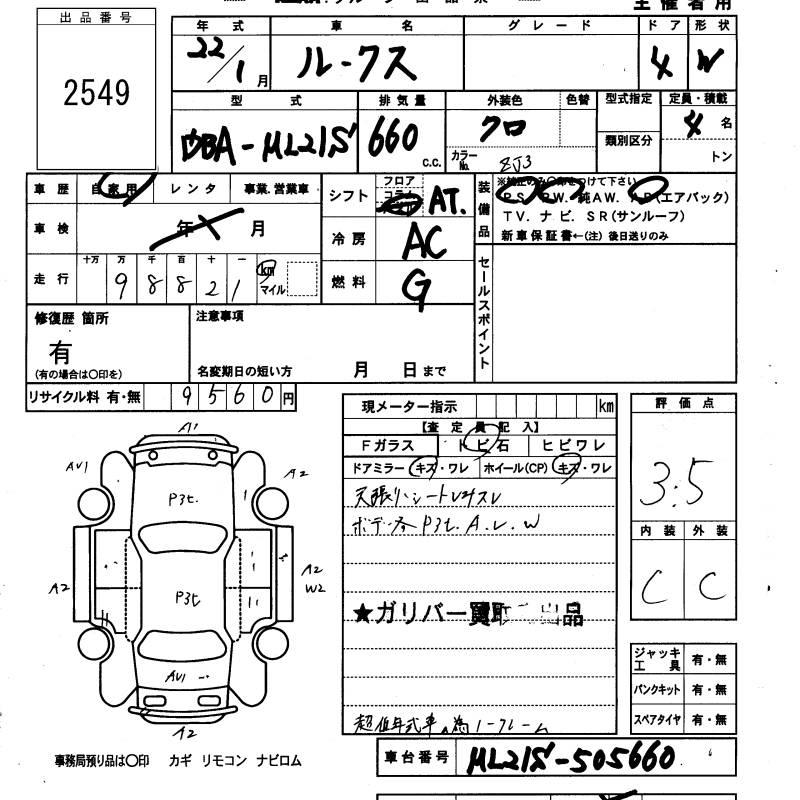 主 催 者 用
出 品 番 号
2549
年 式 車 名 グ レ ー ド ド ア 形 状
22/1 月 ルークス 4 W
型 式 排 気 量 外装色 色替 型式指定 定員・積載
DBA-ML21S 660 c.c. クロ 類別区分 4 名
カラーNo. ZJ3 トン
車 歴 自 家 用 レ ン タ 事業.営業車 シフト フロア コラム AT.
装備品 ※純正のみ〇印をつけて下さい
P.S. P.W. 純A.W. A.B(エアバック)
T.V. ナ ビ. S.R(サンルーフ)
新 車 保 証 書←(注) 後日送りのみ
車 検 年 月 冷 房 AC
走 行 十万 万 千 百 十 一
9 8 8 2 1 km マイル 燃 料 G
セールスポイント
修復歴 箇所 注意事項
有
(有の場合は〇印を) 名変期日の短い方 月 日 まで
リサイクル料 有・無 9 5 6 0 円
現メーター指示 km
評 価 点
3.5
【査 定 員 記 入】
Fガラス ト ビ 石 ヒ ビ ワ レ
ドアミラー キズ・ワレ ホイール(CP) キズ・ワレ
天張り、シートレザスレ
ボデー各 P3t. A. U. W
内 装 外 装
C C
★ガリバー買取 出品
超低年式車の為ノークレーム
ジャッキ 工 具 有・無
パンクキット 有・無
スペアタイヤ 有・無
車 台 番 号 ML21S-505660
A1
AU1 A2
P3t.
A2 P3t A2
W2
AU1
A2
事務局預り品は〇印 カギ リモコン ナビロム